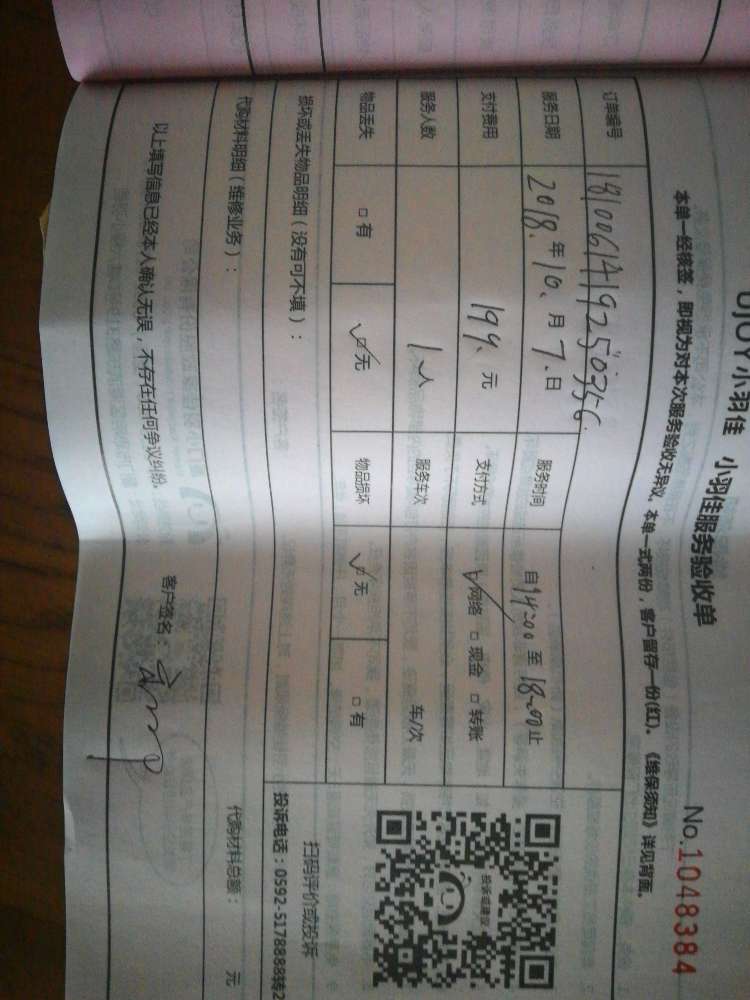 UJOY小羽佳 小羽佳服务验收单
No.1048384
本单一经核签，即视为对本次服务验收无异议。本单一式两份，客户留存一份(红)。《维保须知》详见背面。
订单编号 1810061419250356
服务日期 2018.年10.月7.日 服务时间 自14:00至18:00止
支付费用 199.元 支付方式 网络 □现金 □转账
服务人数 1人 服务车次 车/次
物品丢失 □有 □无 物品损坏 □无 □有
损坏或丢失物品明细（没有可不填）：
投诉或建议
扫码评价或投诉
投诉电话：0592-5178888转2
代购材料明细（维修业务）：
代购材料总额： 元
以上填写信息已经本人确认无误，不存在任何争议纠纷。 客户签名：